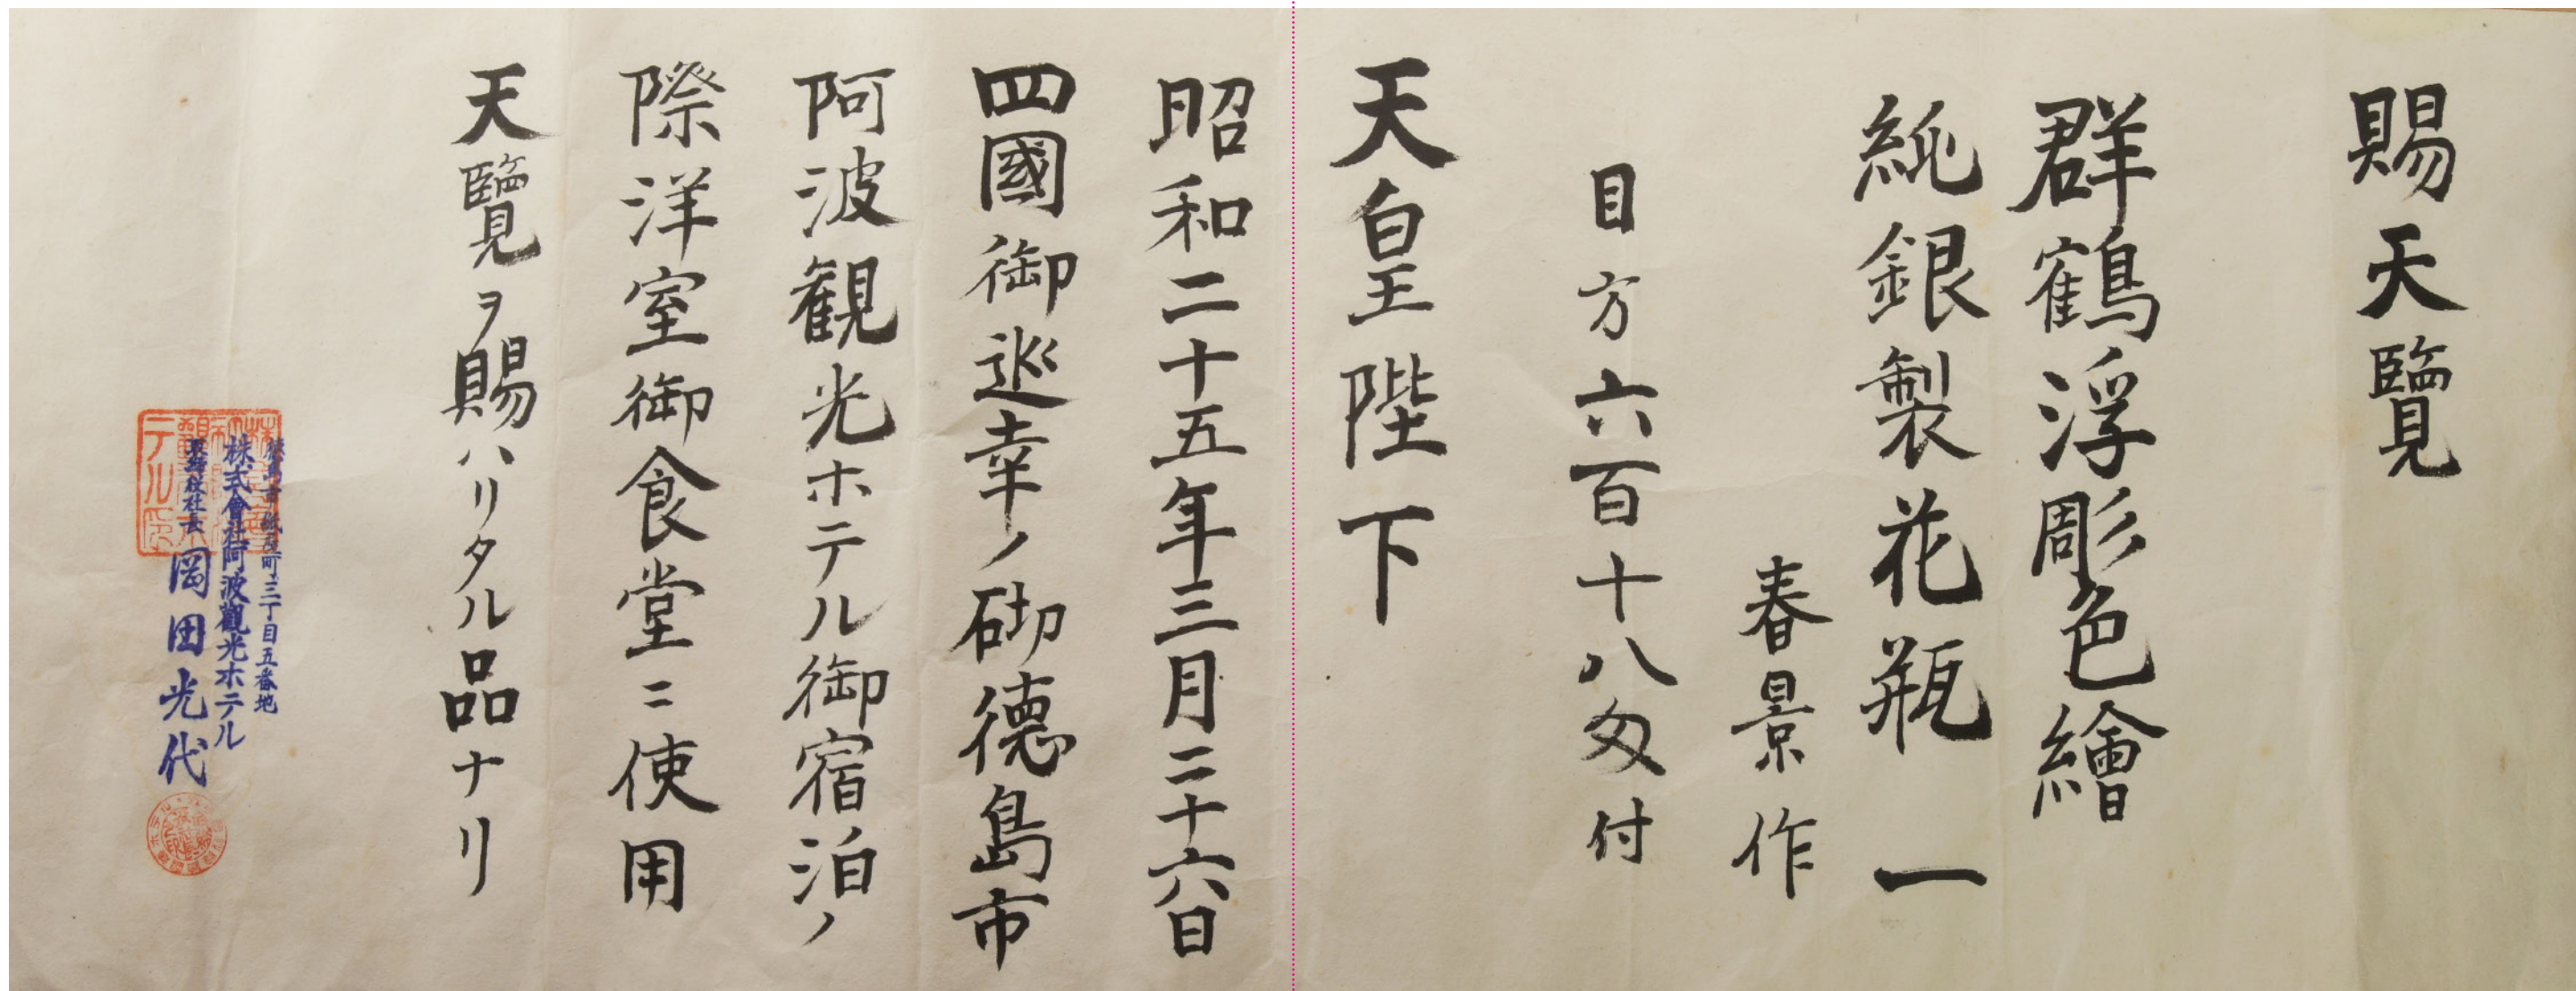 賜天覽
群鶴浮彫色繪
純銀製花瓶 一
春景作
目方六百十八匁付
天皇陛下
昭和二十五年三月二十六日
四國御巡幸ノ砌德島市
阿波観光ホテル御宿泊ノ
際洋室御食堂ニ使用
天覽ヲ賜ハリタル品ナリ
町三丁目五番地
株式會社阿波觀光ホテル
取締役社長 岡田光代